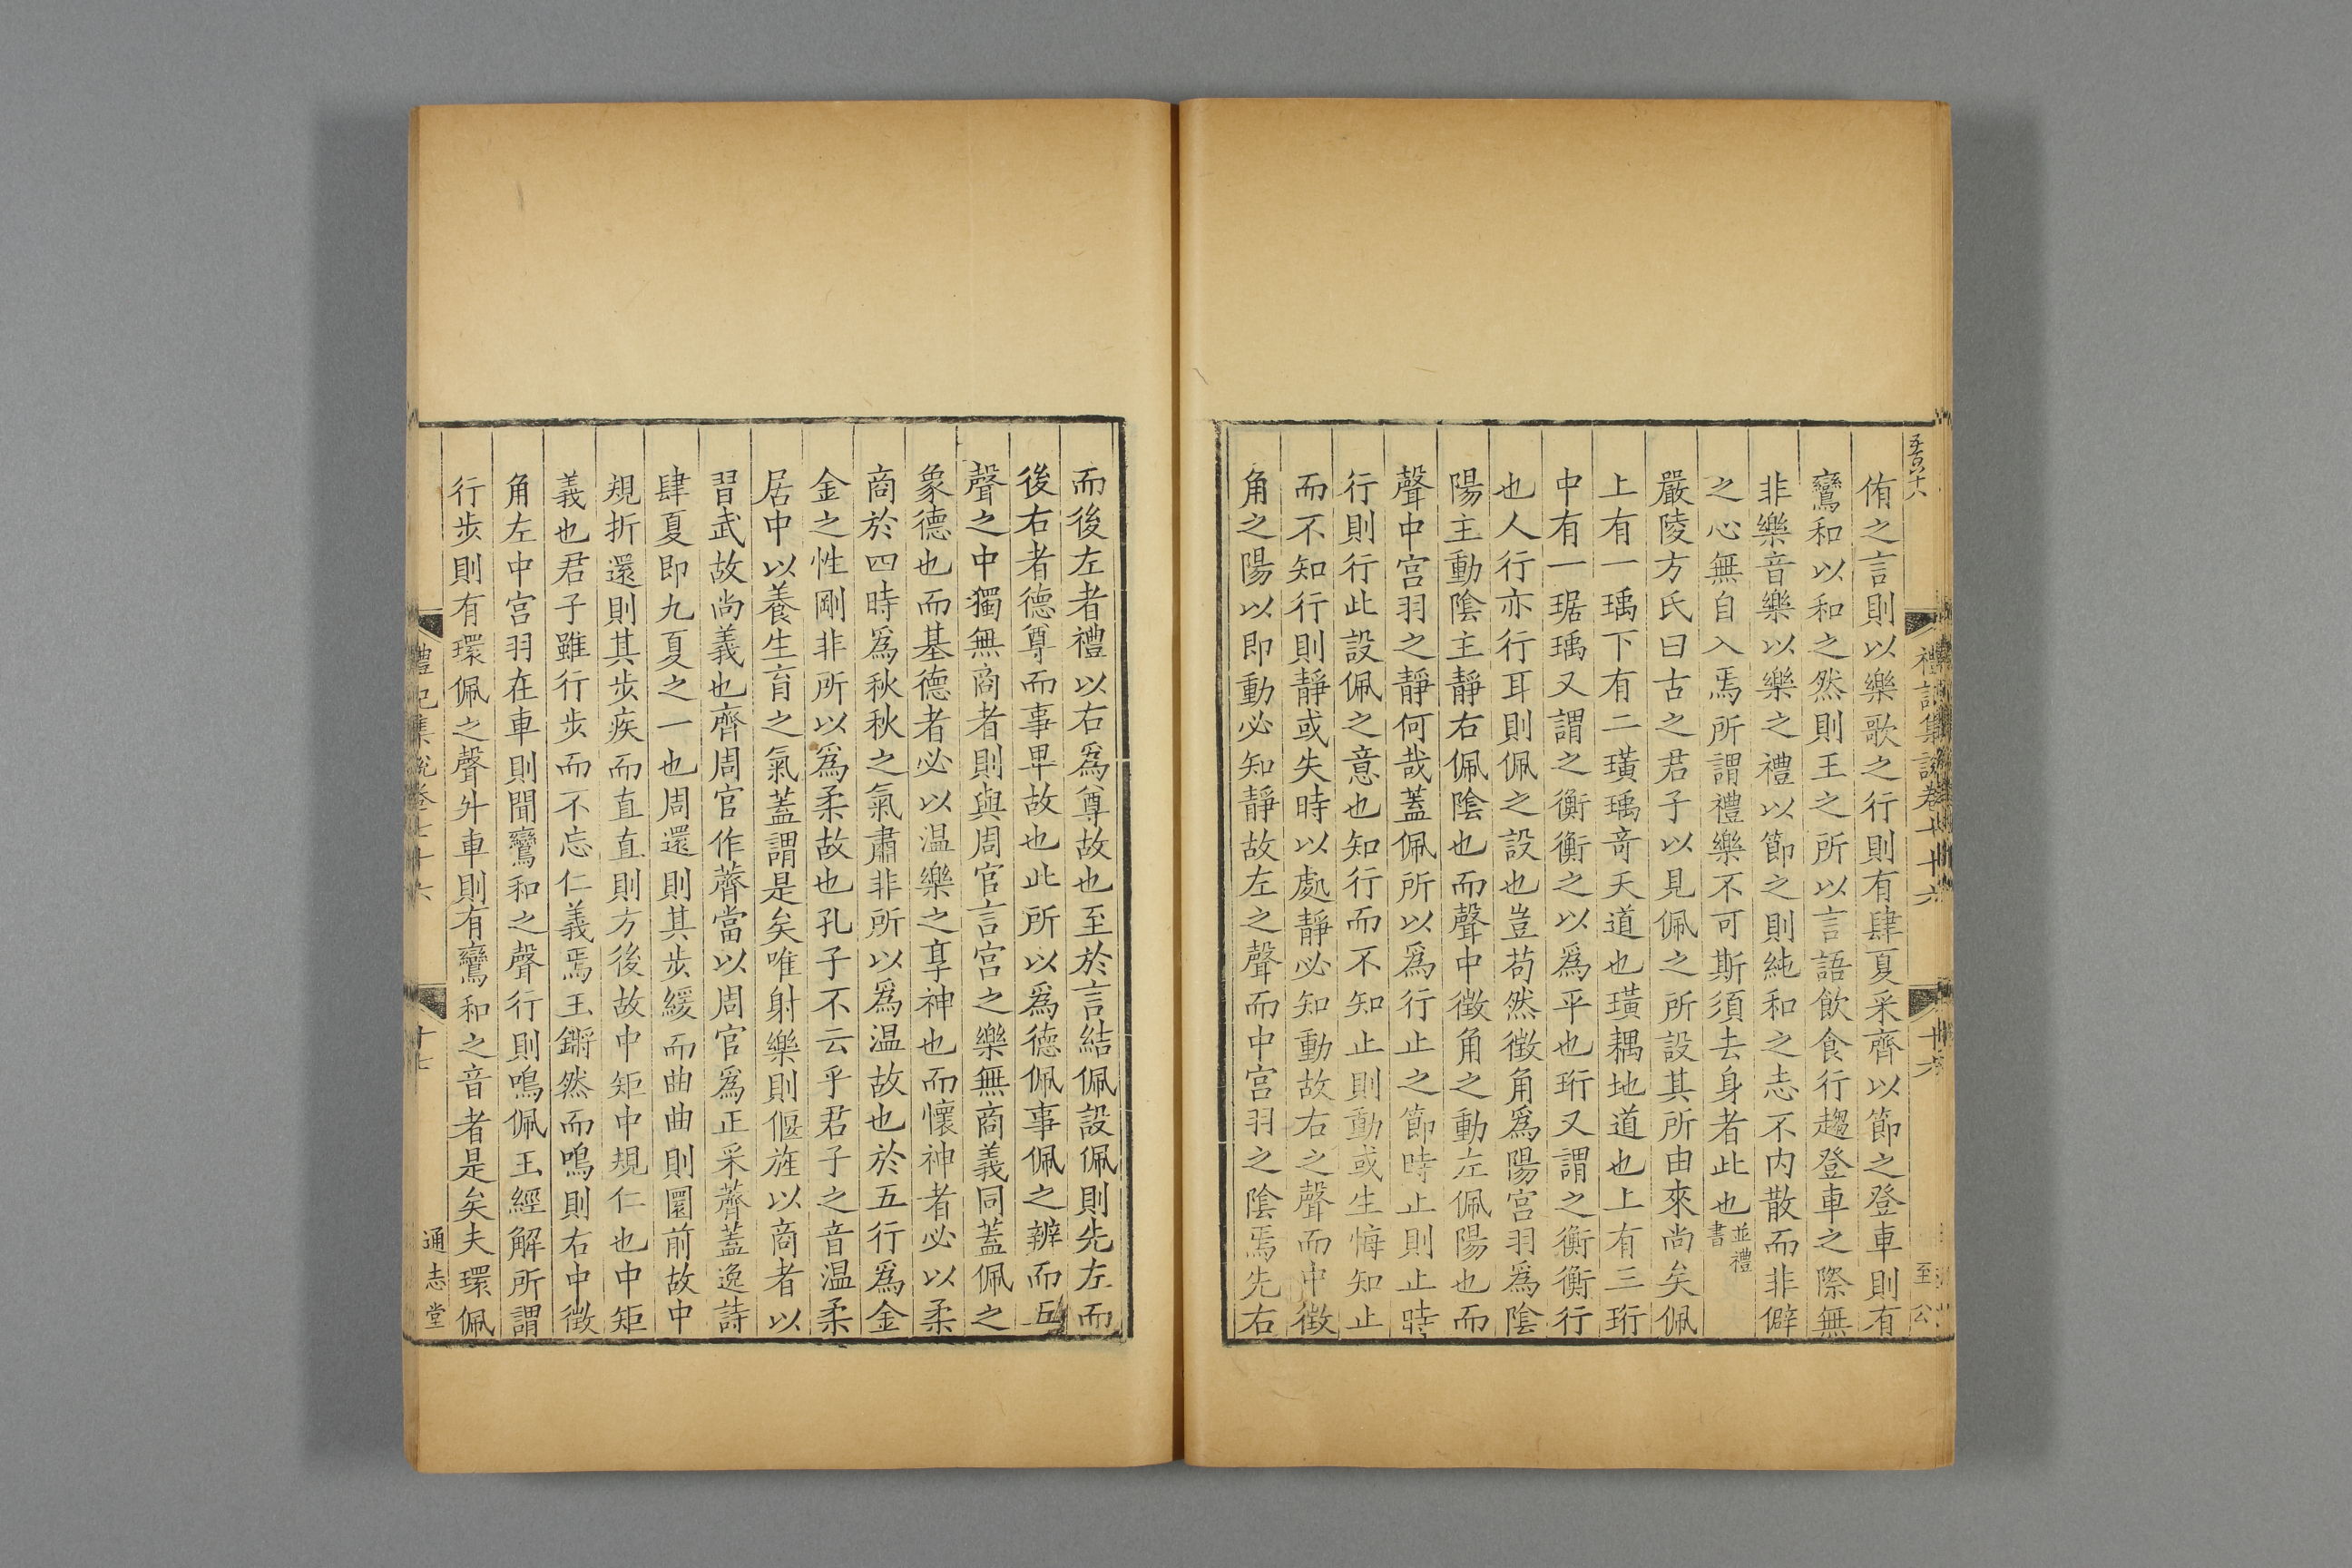 侑之言則以樂歌之行則有肆夏采齊以節之登車則有
鸞和以和之然則王之所以言語飲食行趨登車之際無
非樂音樂以樂之禮以節之則純和之志不內散而非僻
之心無自入焉所謂禮樂不可斯須去身者此也並禮書
嚴陵方氏曰古之君子以見佩之所設其所由來尚矣佩
上有一瑀下有二璜瑀竒天道也璜耦地道也上有三珩
中有一琚瑀又謂之衡衡之以爲平也珩又謂之衡衡行
也人行亦行耳則佩之設也豈苟然徵角爲陽宫羽爲陰
陽主動陰主靜右佩陰也而聲中徵角之動左佩陽也而
聲中宫羽之靜何哉蓋佩所以爲行止之節時止則止時
行則行此設佩之意也知行而不知止則動或生悔知止
而不知行則靜或失時以處靜必知動故右之聲而中徵
角之陽以即動必知靜故左之聲而中宫羽之陰焉先右
而後左者禮以右爲尊故也至於言結佩設佩則先左而
後右者德尊而事畢故也此所以爲德佩事佩之辨而五
聲之中獨無商者則與周官言宫之樂無商義同蓋佩之
象德也而基德者必以温樂之享神也而懷神者必以柔
商於四時爲秋秋之氣肅非所以爲温故也於五行爲金
金之性剛非所以爲柔故也孔子不云乎君子之音温柔
居中以養生育之氣蓋謂是矣唯射樂則偃旌以商者以
習武故尚義也齊周官作薺當以周官爲正采薺蓋逸詩
肆夏即九夏之一也周還則其步緩而曲曲則圜前故中
規折還則其步疾而直直則方後故中矩中規仁也中矩
義也君子雖行步而不忘仁義焉玉鏘然而鳴則右中徵
角左中宫羽在車則聞鸞和之聲行則鳴佩玉經解所謂
行步則有環佩之聲升車則有鸞和之音者是矣夫環佩
通志堂